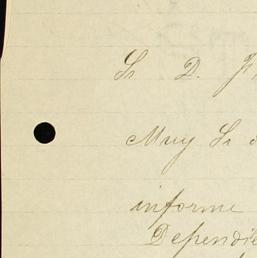 Sr D.
Muy Sr
informe
Dependie